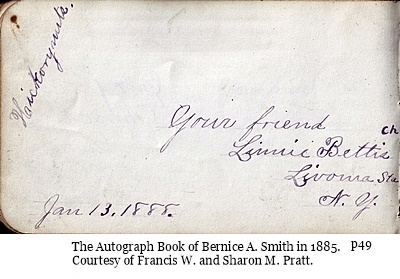 Hickorynuts.
Your friend
Ch
Linnie Bettis
Livonia Sta
N. Y.
Jan 13, 1888.
The Autograph Book of Bernice A. Smith in 1885. P49
Courtesy of Francis W. and Sharon M. Pratt.